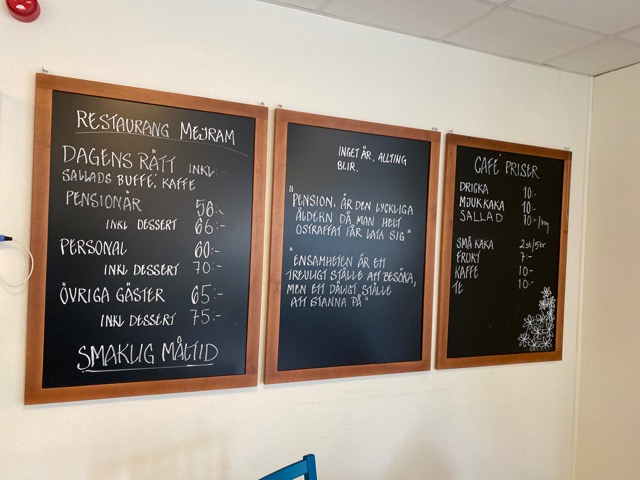 RESTAURANG MEJRAM
DAGENS RÄTT INKL:
SALLADS BUFFÉ, KAFFE
PENSIONÄR 56:-
INKL DESSERT 66:-
PERSONAL 60:-
INKL DESSERT 70:-
ÖVRIGA GÄSTER 65:-
INKL DESSERT 75:-
SMAKLIG MÅLTID
INGET ÄR, ALLTING
BLIR.
"PENSION, ÄR DEN LYCKLIGA
ÅLDERN DÅ MAN HELT
OSTRAFFAT FÅR LATA SIG"
"ENSAMHETEN ÄR ETT
TREVLIGT STÄLLE ATT BESÖKA,
MEN ETT DÅLIGT STÄLLE
ATT STANNA PÅ"
CAFÉ PRISER
DRICKA 10:-
MJUKKAKA 10:-
SALLAD 10:-/hg
SMÅ KAKA 2st/5kr
FRUKT 7-
KAFFE 10-
TE 10-